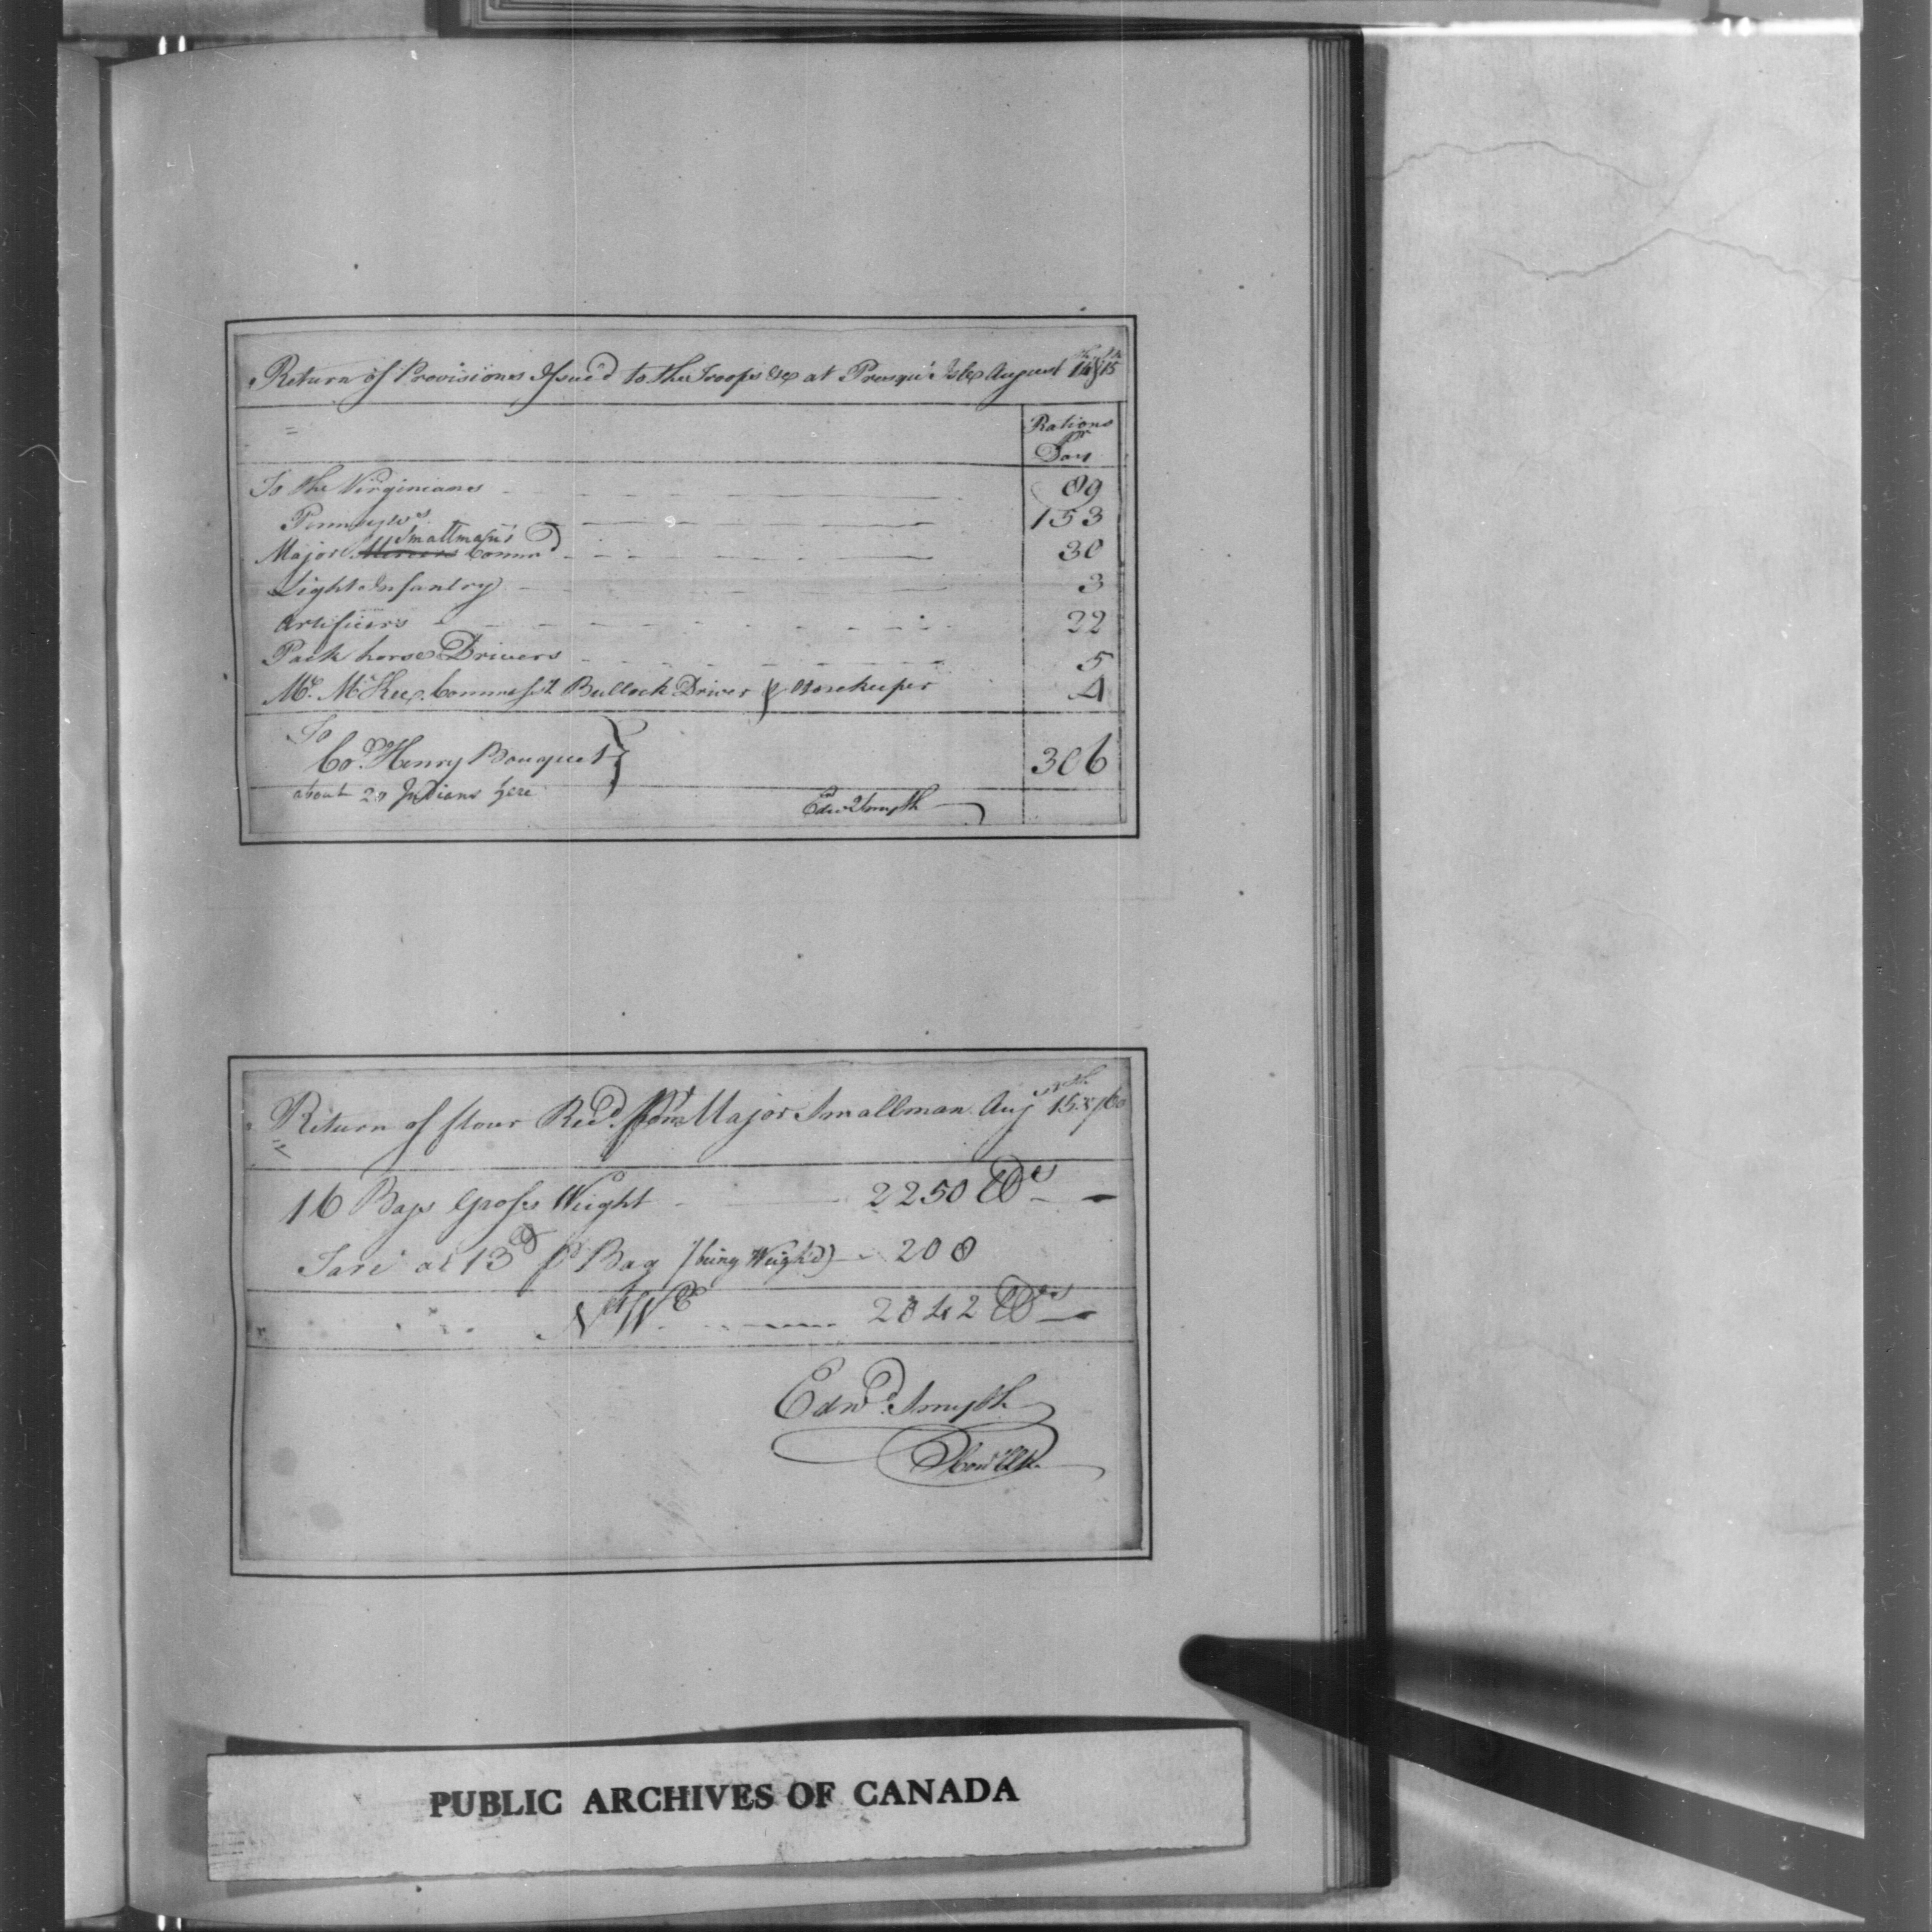 Return of Provisions Issue'd to the Troops &c at Presqu' Isle August 14th & 15th
Rations
Pr
Day
To the Virginians 89
Pennsylvs 153
Smallman's
Major Commd 30
Light Infantry 3
Artificers 22
Pack horse Drivers 5
Mr. McKee, Commest Bullock Driver & Storekeeper 4
To
Col. Henry Bouquet } 306
about 20 Indians here
Edwd Smyth
Return of flour Recd. from Major Smallman Augst 15th 1760
16 Bags Gross Weight 2250 lbs
Tare at 13lb p Bag (being Weigh'd) 208
Nt Wt 2042 lbs
Edwd. Smyth
PUBLIC ARCHIVES OF CANADA